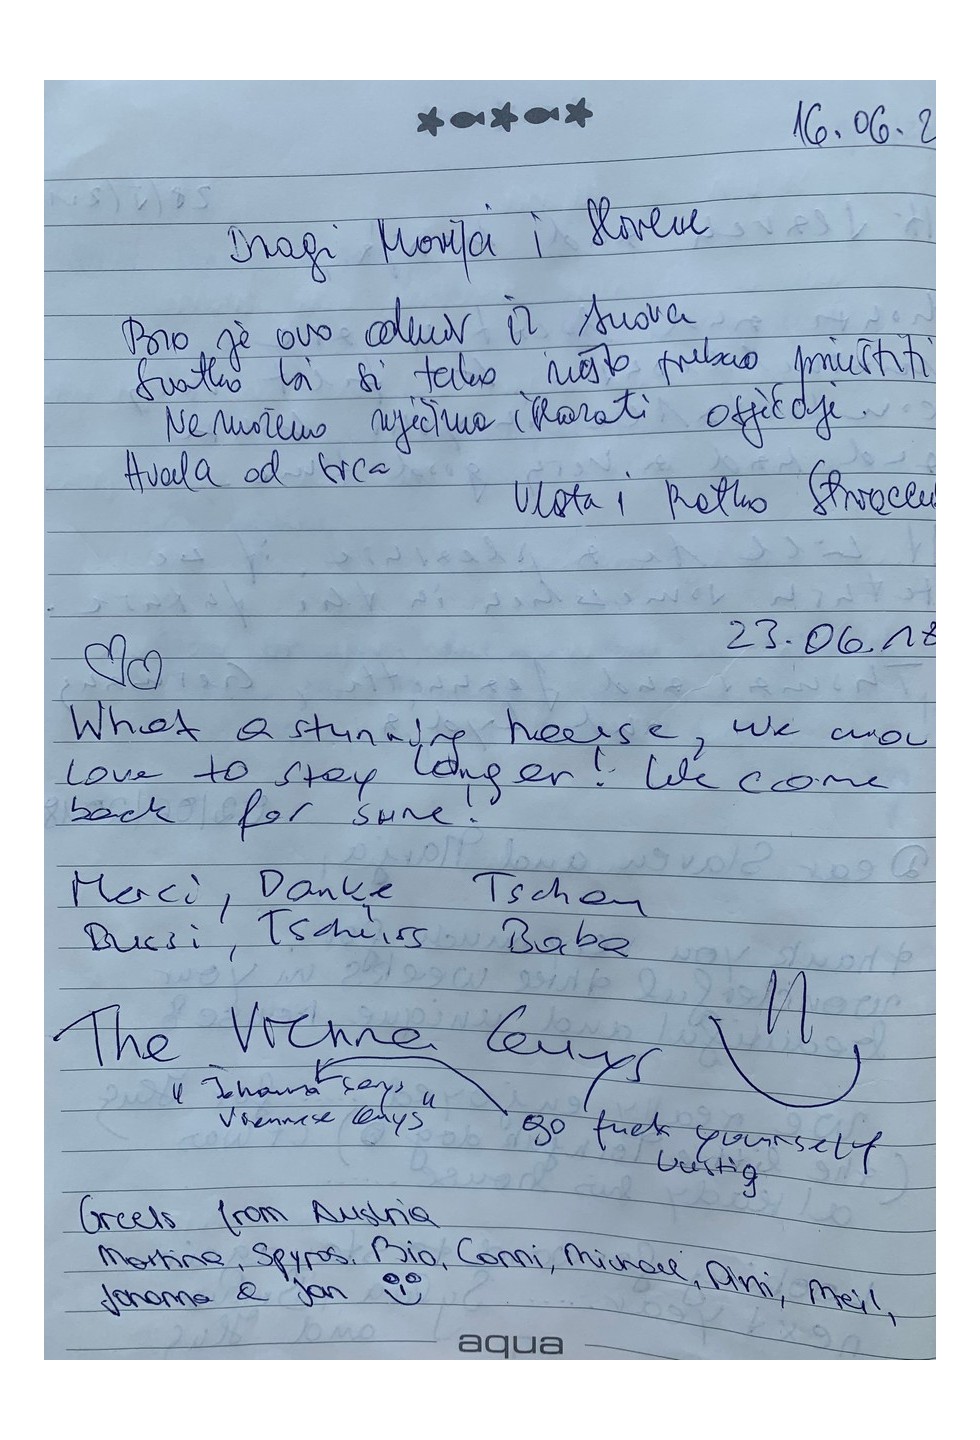 16.06.2
Dragi Marija i Slovene
Bio je ovo odmor iz snova
Svatko bi si tako nešto trebao priuštiti
Ne možemo riječima iskazati osjećaje.
Hvala od srca
Vlasta i Ratko
23.06.18
What a stunning house, we
love to stay longer! We come
back for sure!
Merci, Danke Tschau
Bussi, Tschüss Baba
The Vienna Guys
"Johanna says
Viennese Guys"
go fuck yourself
lustig
Greets from Austria
Martina, Spyros, Bio, Conni, Michael, Ani, Meil,
Johanna & Jan
aqua